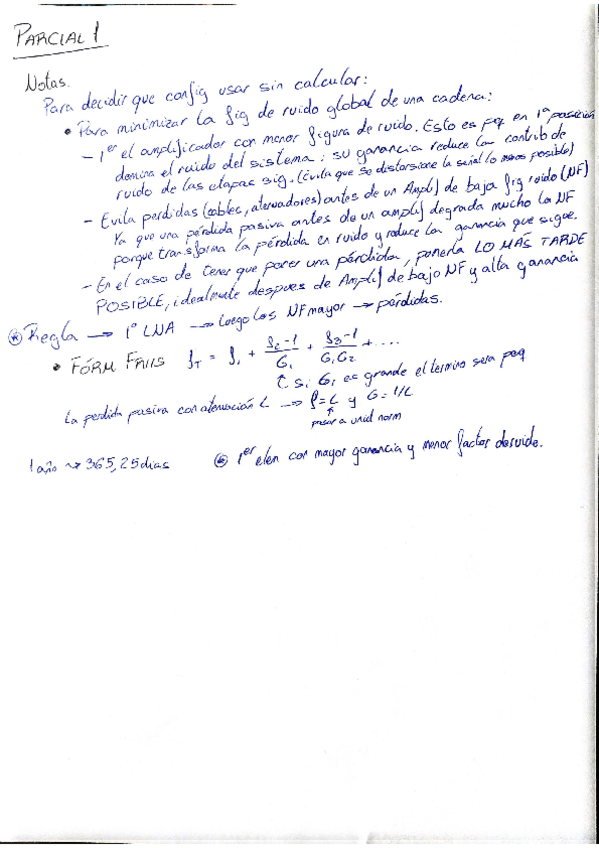 PARCIAL 1
Notas.
Para decidir que config usar sin calcular:
• Para minimizar la fig de ruido global de una cadena:
- 1er el amplificador con menor figura de ruido. Esto es pq en 1ª posición
domina el ruido del sistema: su ganancia reduce la contrib de
ruido de las etapas sig. (Evita que se distorsione la señal lo menos posible)
- Evita perdidas (cables, atenuadores) antes de un Amplif de baja fig ruido (NF)
Ya que una pérdida pasiva antes de un amplif degrada mucho la NF
porque transforma la pérdida en ruido y reduce la ganancia que sigue.
- En el caso de tener que poner una pérdida, ponerla LO MÁS TARDE
POSIBLE, idealmente despues de Amplif de bajo NF y alta ganancia
* Regla → 1º LNA → luego los NF mayor → pérdidas.
• FÓRM FRIIS f_T = f_1 + (f_2-1)/G_1 + (f_3-1)/(G_1 G_2) + ....
↑ si G_1 es grande el termino sera peq
La perdida pasiva con atenuación L → f=L y G=1/L
pasar a unid norm
1 año ~> 365,25 dias
* 1er elem con mayor ganancia y menor factor de ruido.